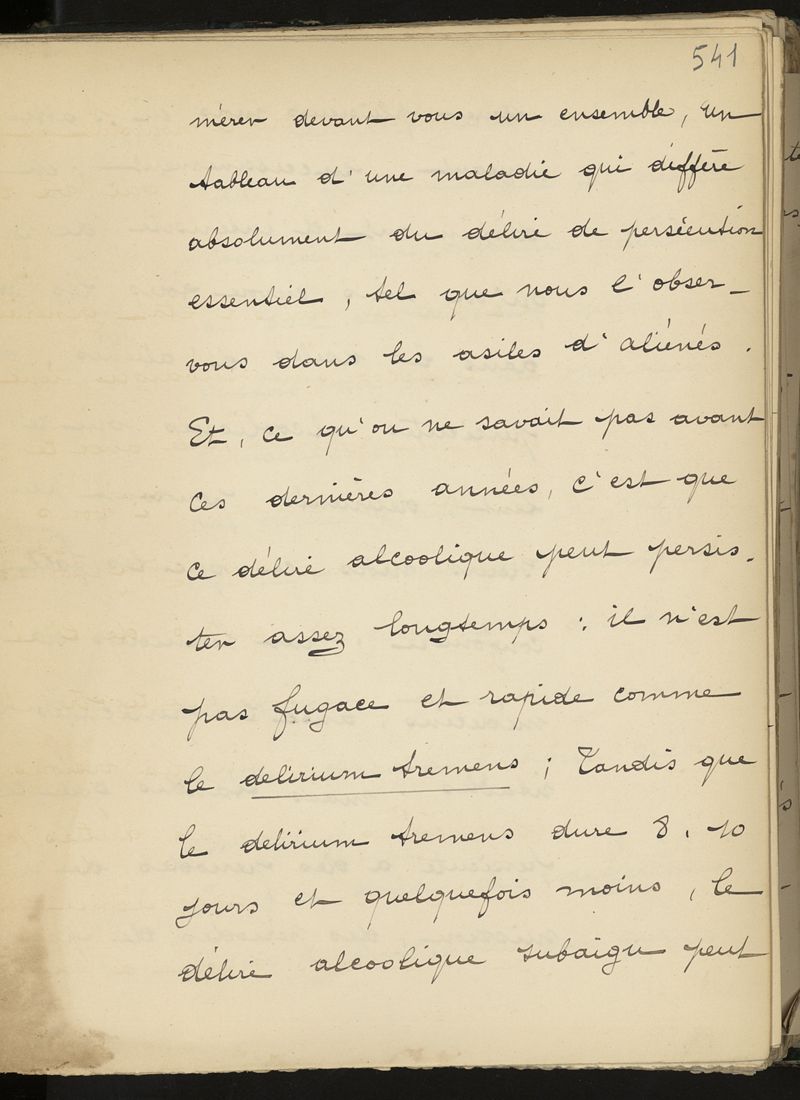 541
mérer devant vous un ensemble, un
tableau d'une maladie qui diffère
absolument du délire de persécution
essentiel, tel que nous l'obser-
vons dans les asiles d'aliénés.
Et, ce qu'on ne savait pas avant
ces dernières années, c'est que
ce délire alcoolique peut persis-
ter assez longtemps : il n'est
pas fugace et rapide comme
le delirium tremens ; Tandis que
le delirium tremens dure 8, 10
jours et quelquefois moins, le
délire alcoolique subaigu peut